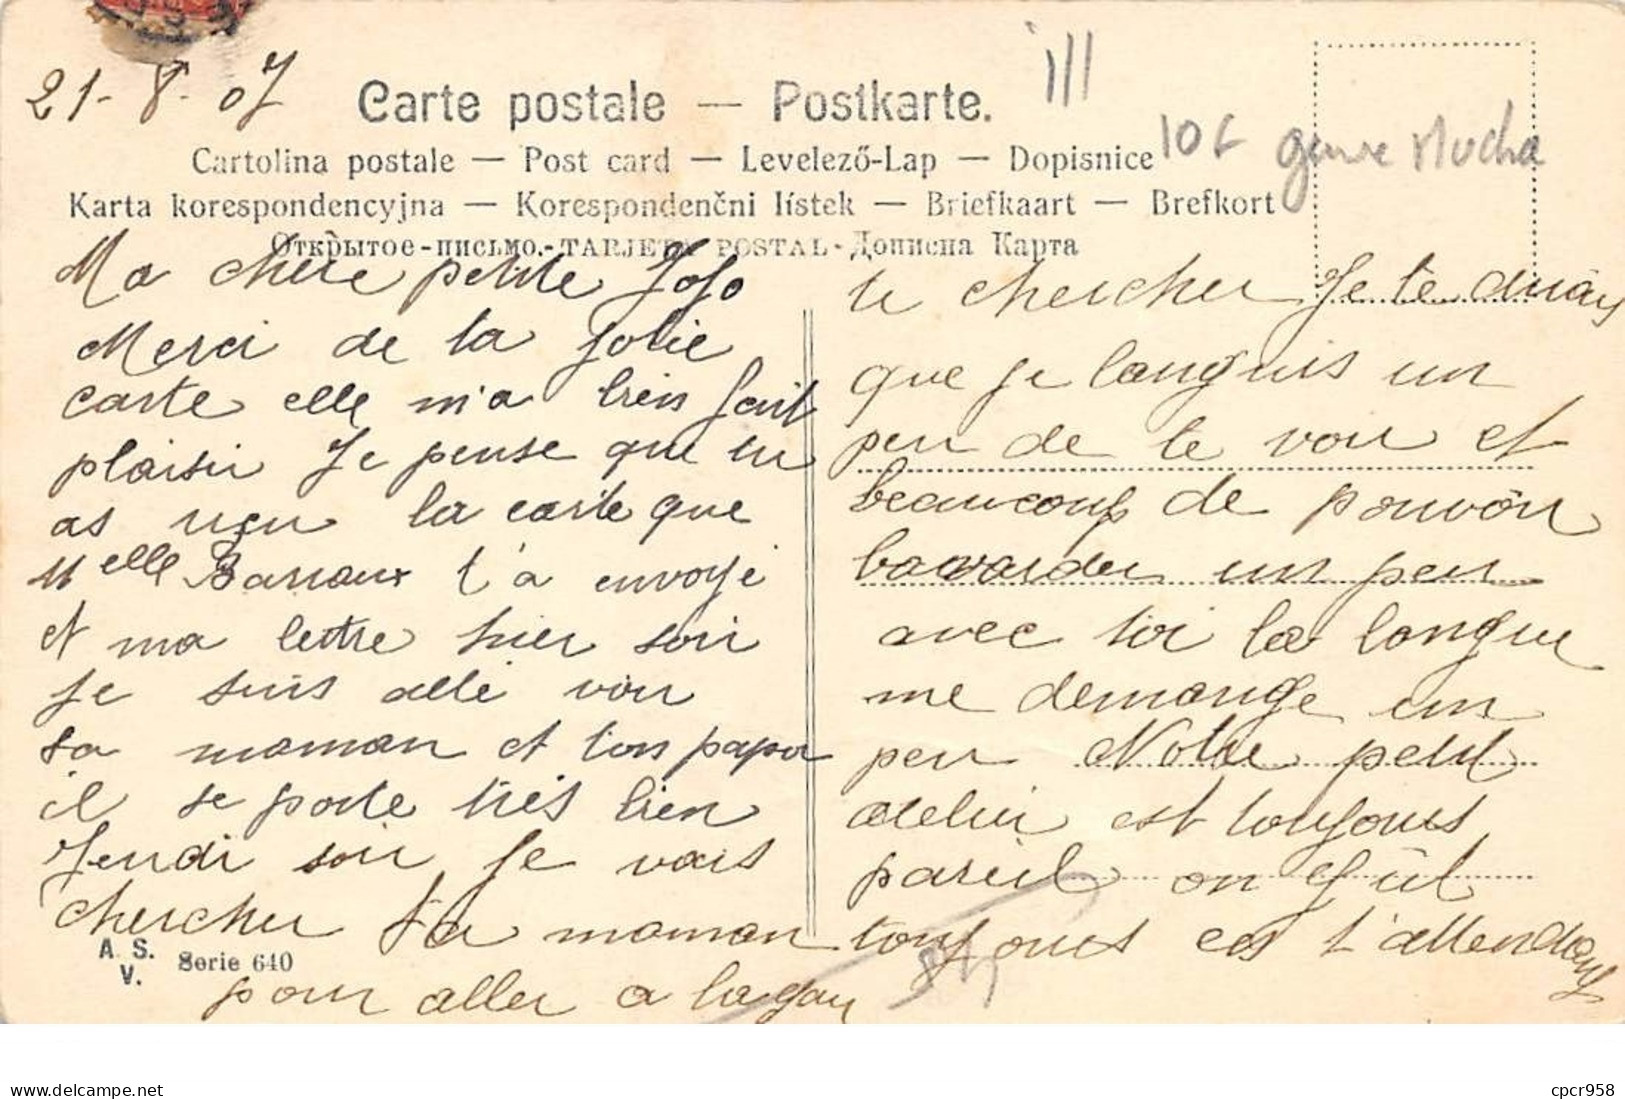 21-8-07
Carte postale — Postkarte.
III
10 F genre Mucha
Cartolina postale — Post card — Levelező-Lap — Dopisnice
Karta korespondencyjna — Korespondenčni lístek — Briefkaart — Brefkort
Открытое-письмо.-TARJETA POSTAL-Дописна Карта
Ma chere petite JoJo
Merci de la jolie
carte elle m'a bien fait
plaisir Je pense que tu
as reçu la carte que
Melle Barraux t'a envoyé
et ma lettre hier soir
je suis allé voir
ta maman et ton papa
il se porte très bien
Jeudi soir je vais
chercher ta maman
pour aller a la gar
A. S.
V.
Serie 640
te chercher Je te dirais
que je languis un
peu de te voir et
beaucoup de pouvoir
bavarder un peu
avec toi la langue
me demange un
peu Notre petit
atelier est toujours
pareil on
toujours en t'attendant
cpcr958
delcampe.net